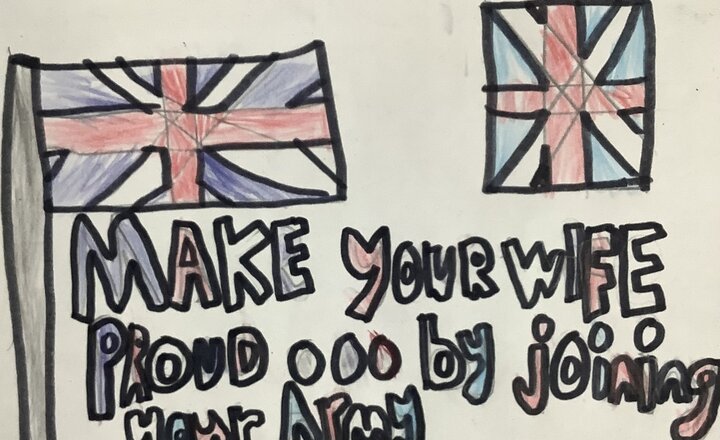 MAKE YOUR WIFE
PROUD ooo by joining
your Army